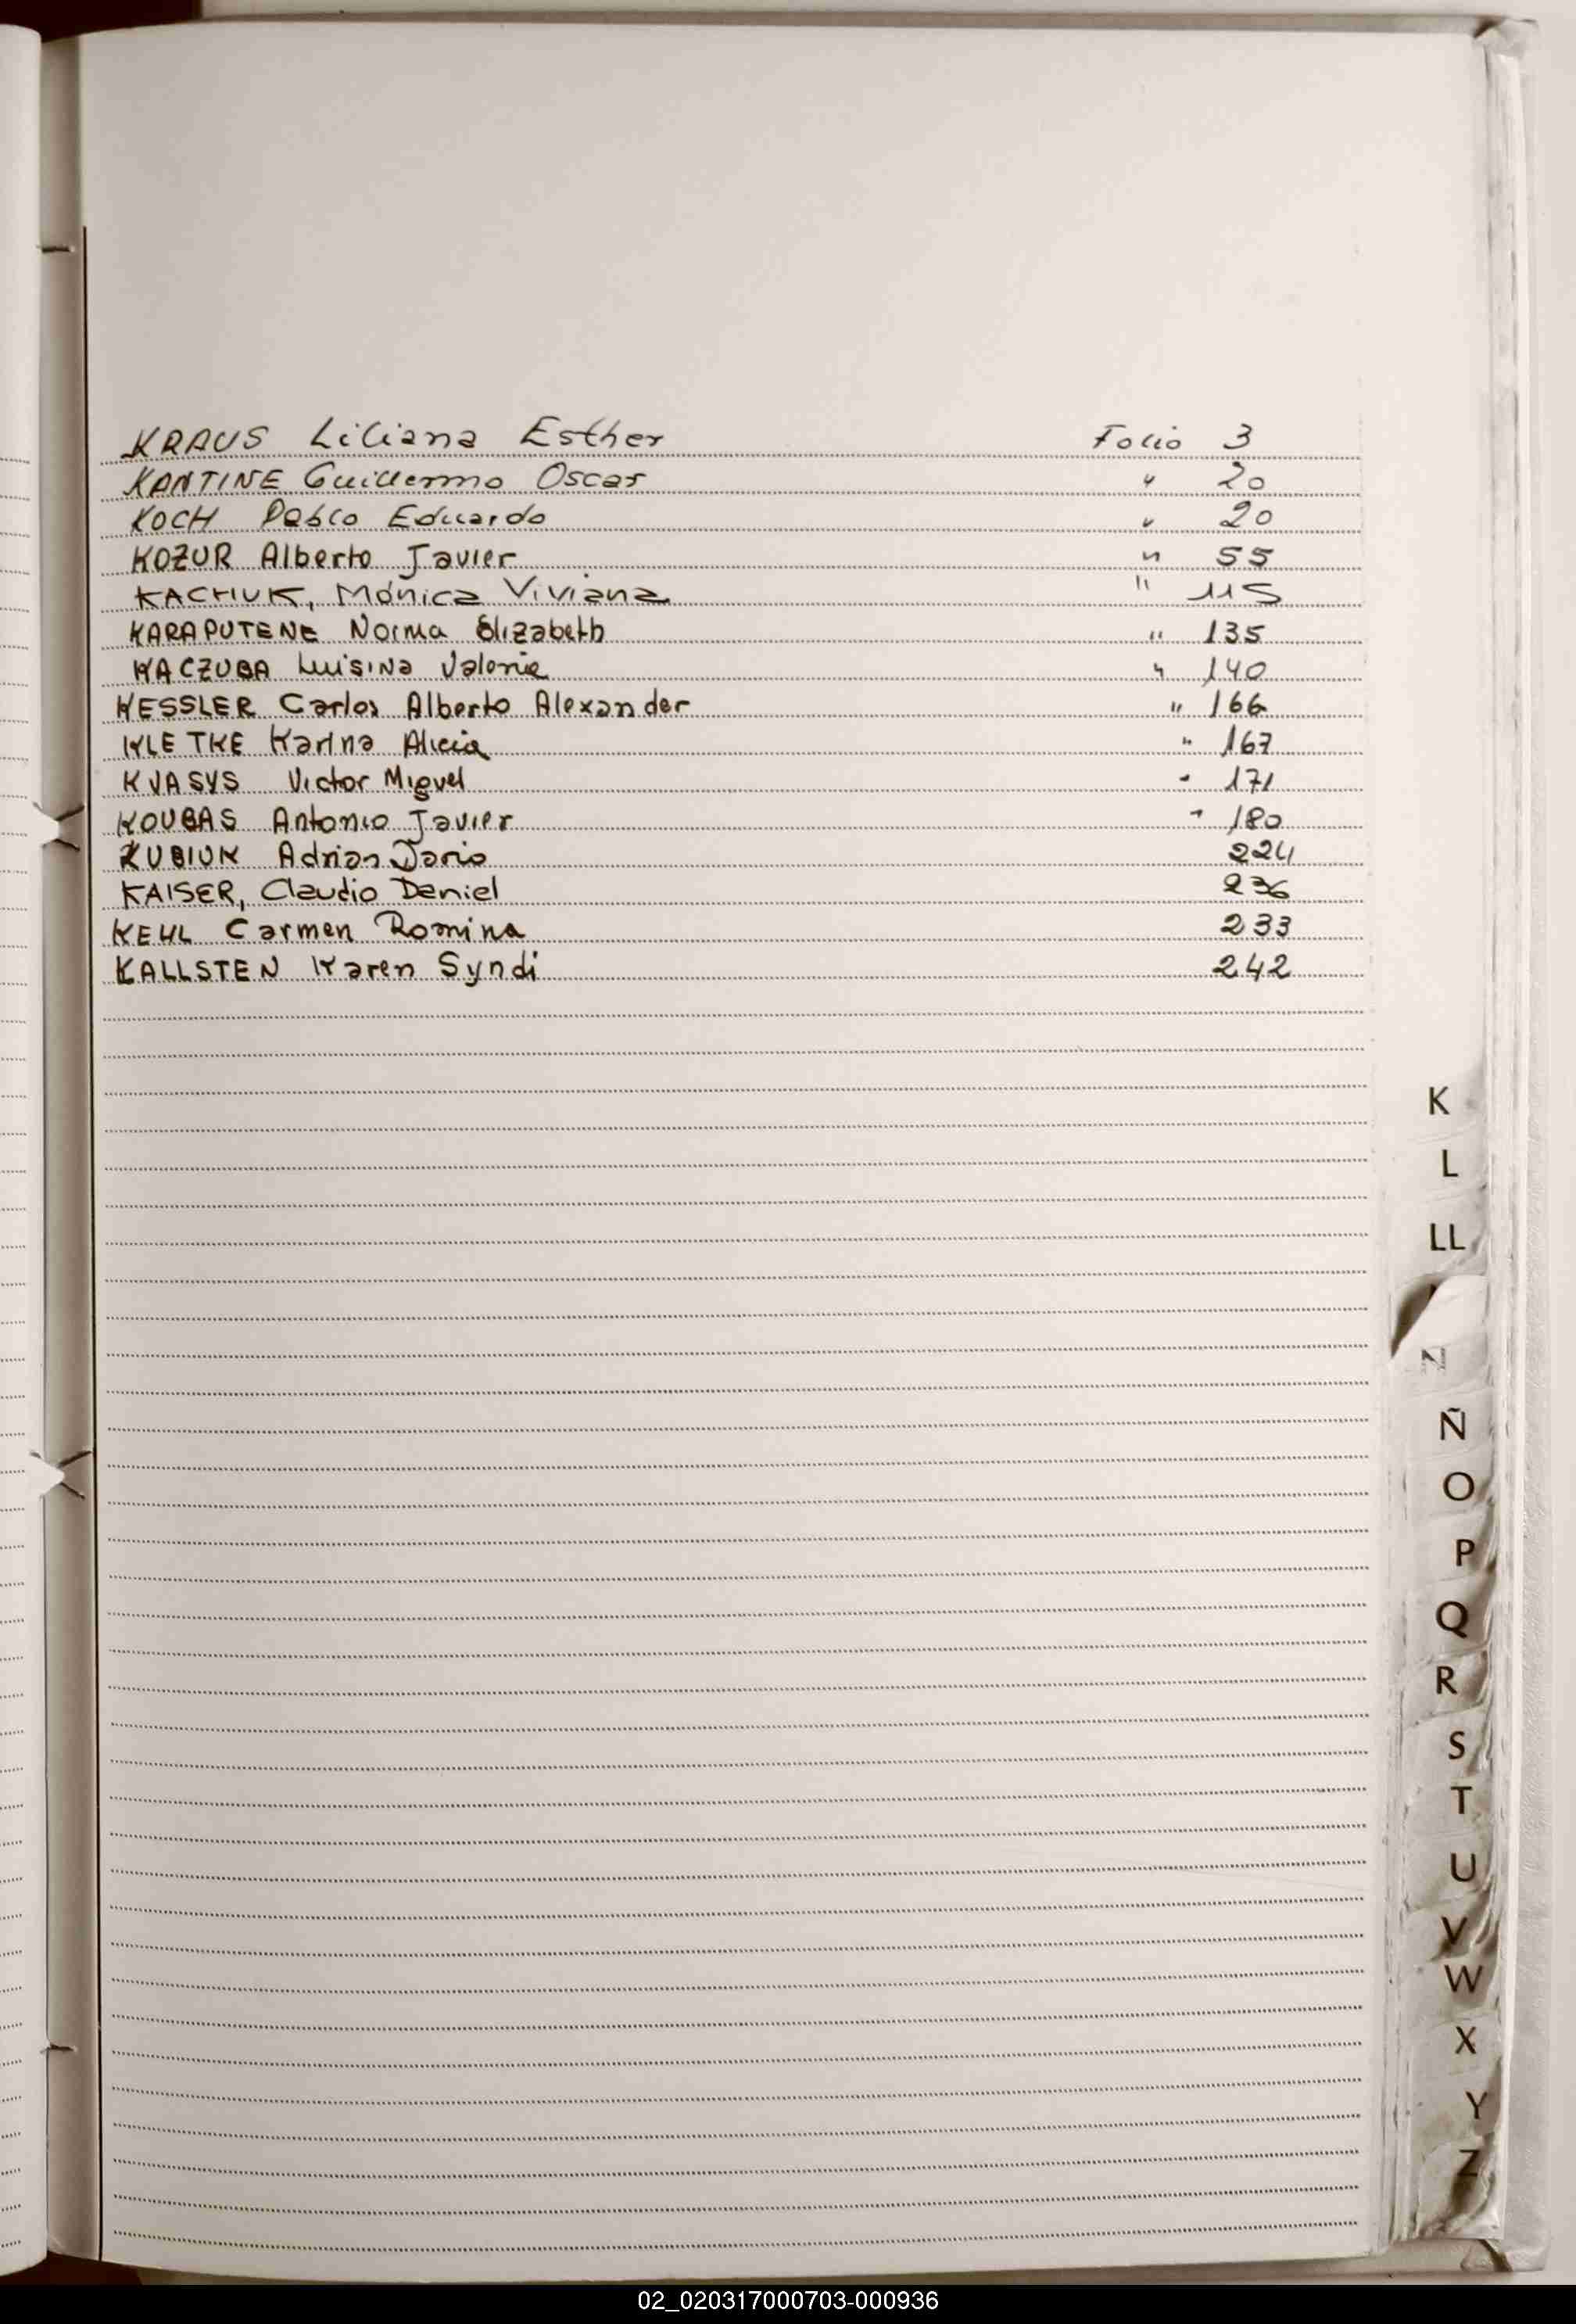 KRAUS Liliana Esther Folio 3
KANTINE Guillermo Oscar " 20
KOCH Pablo Eduardo " 20
KOZUR Alberto Javier " 55
KACHUK, Mónica Viviana " 115
KARAPUTENE Norma Elizabeth " 135
KACZUBA Luisina Valeria " 140
KESSLER Carlos Alberto Alexander " 166
KLETKE Karina Alicia " 167
KVASYS Victor Miguel " 171
KOUBAS Antonio Javier " 180
KUBIUK Adrian Dario 224
KAISER, Claudio Daniel 236
KEHL Carmen Romina 233
KALLSTEN Karen Syndi 242
K
L
LL
N
Ñ
O
P
Q
R
S
T
U
V
W
X
Y
Z
02_020317000703-000936